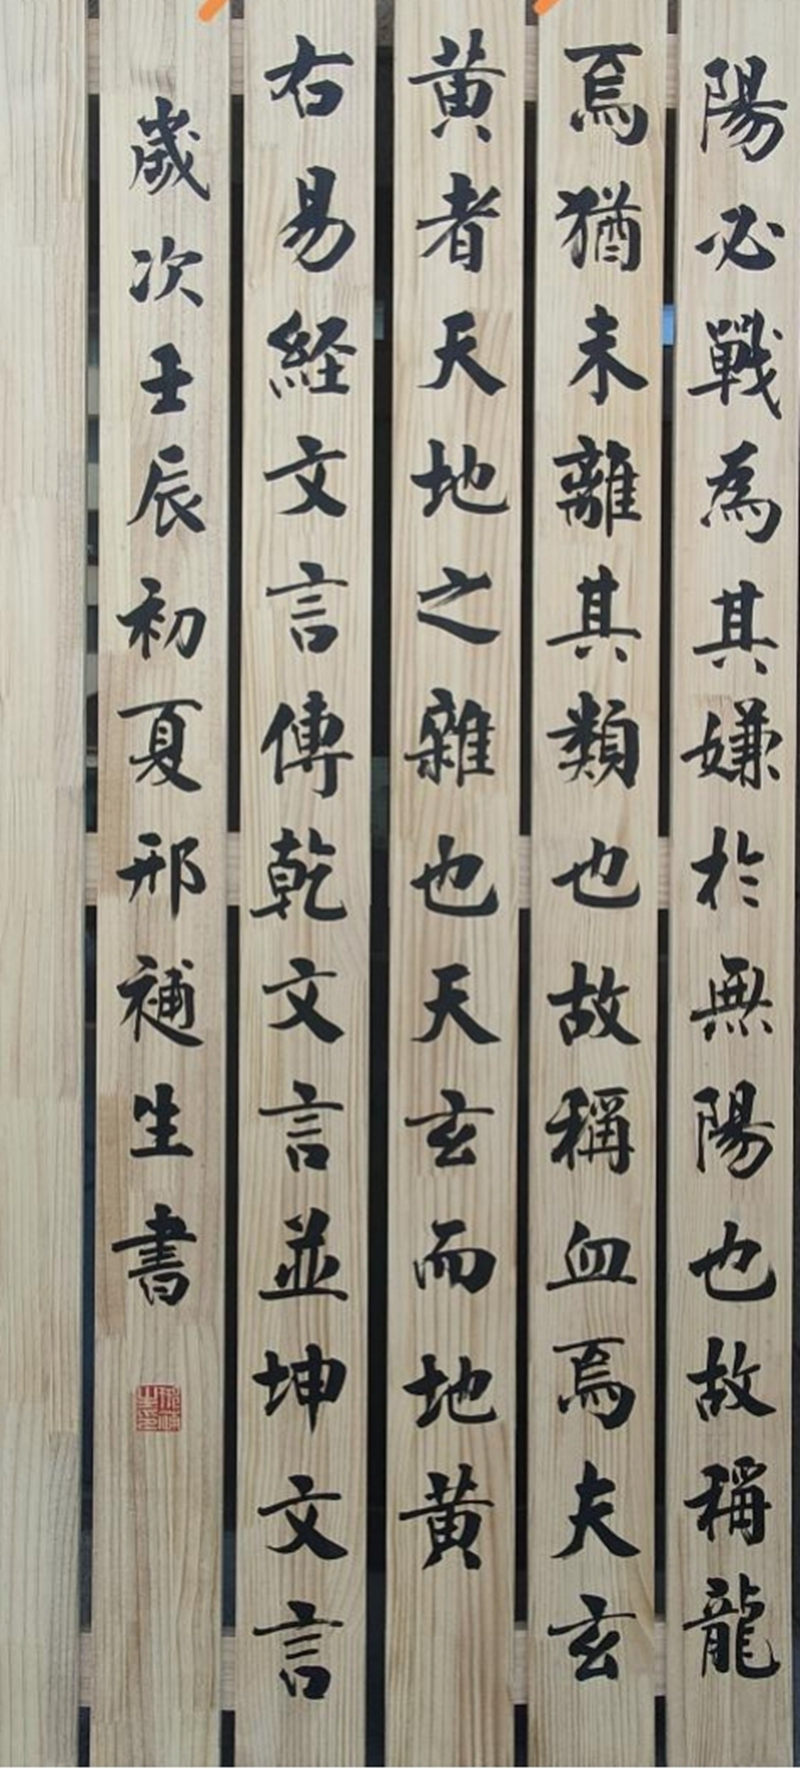 陽必戰為其嫌於無陽也故稱龍
焉猶未離其類也故稱血焉夫玄
黄者天地之雜也天玄而地黄
右易経文言傳乾文言並坤文言
歲次壬辰初夏邢補生書